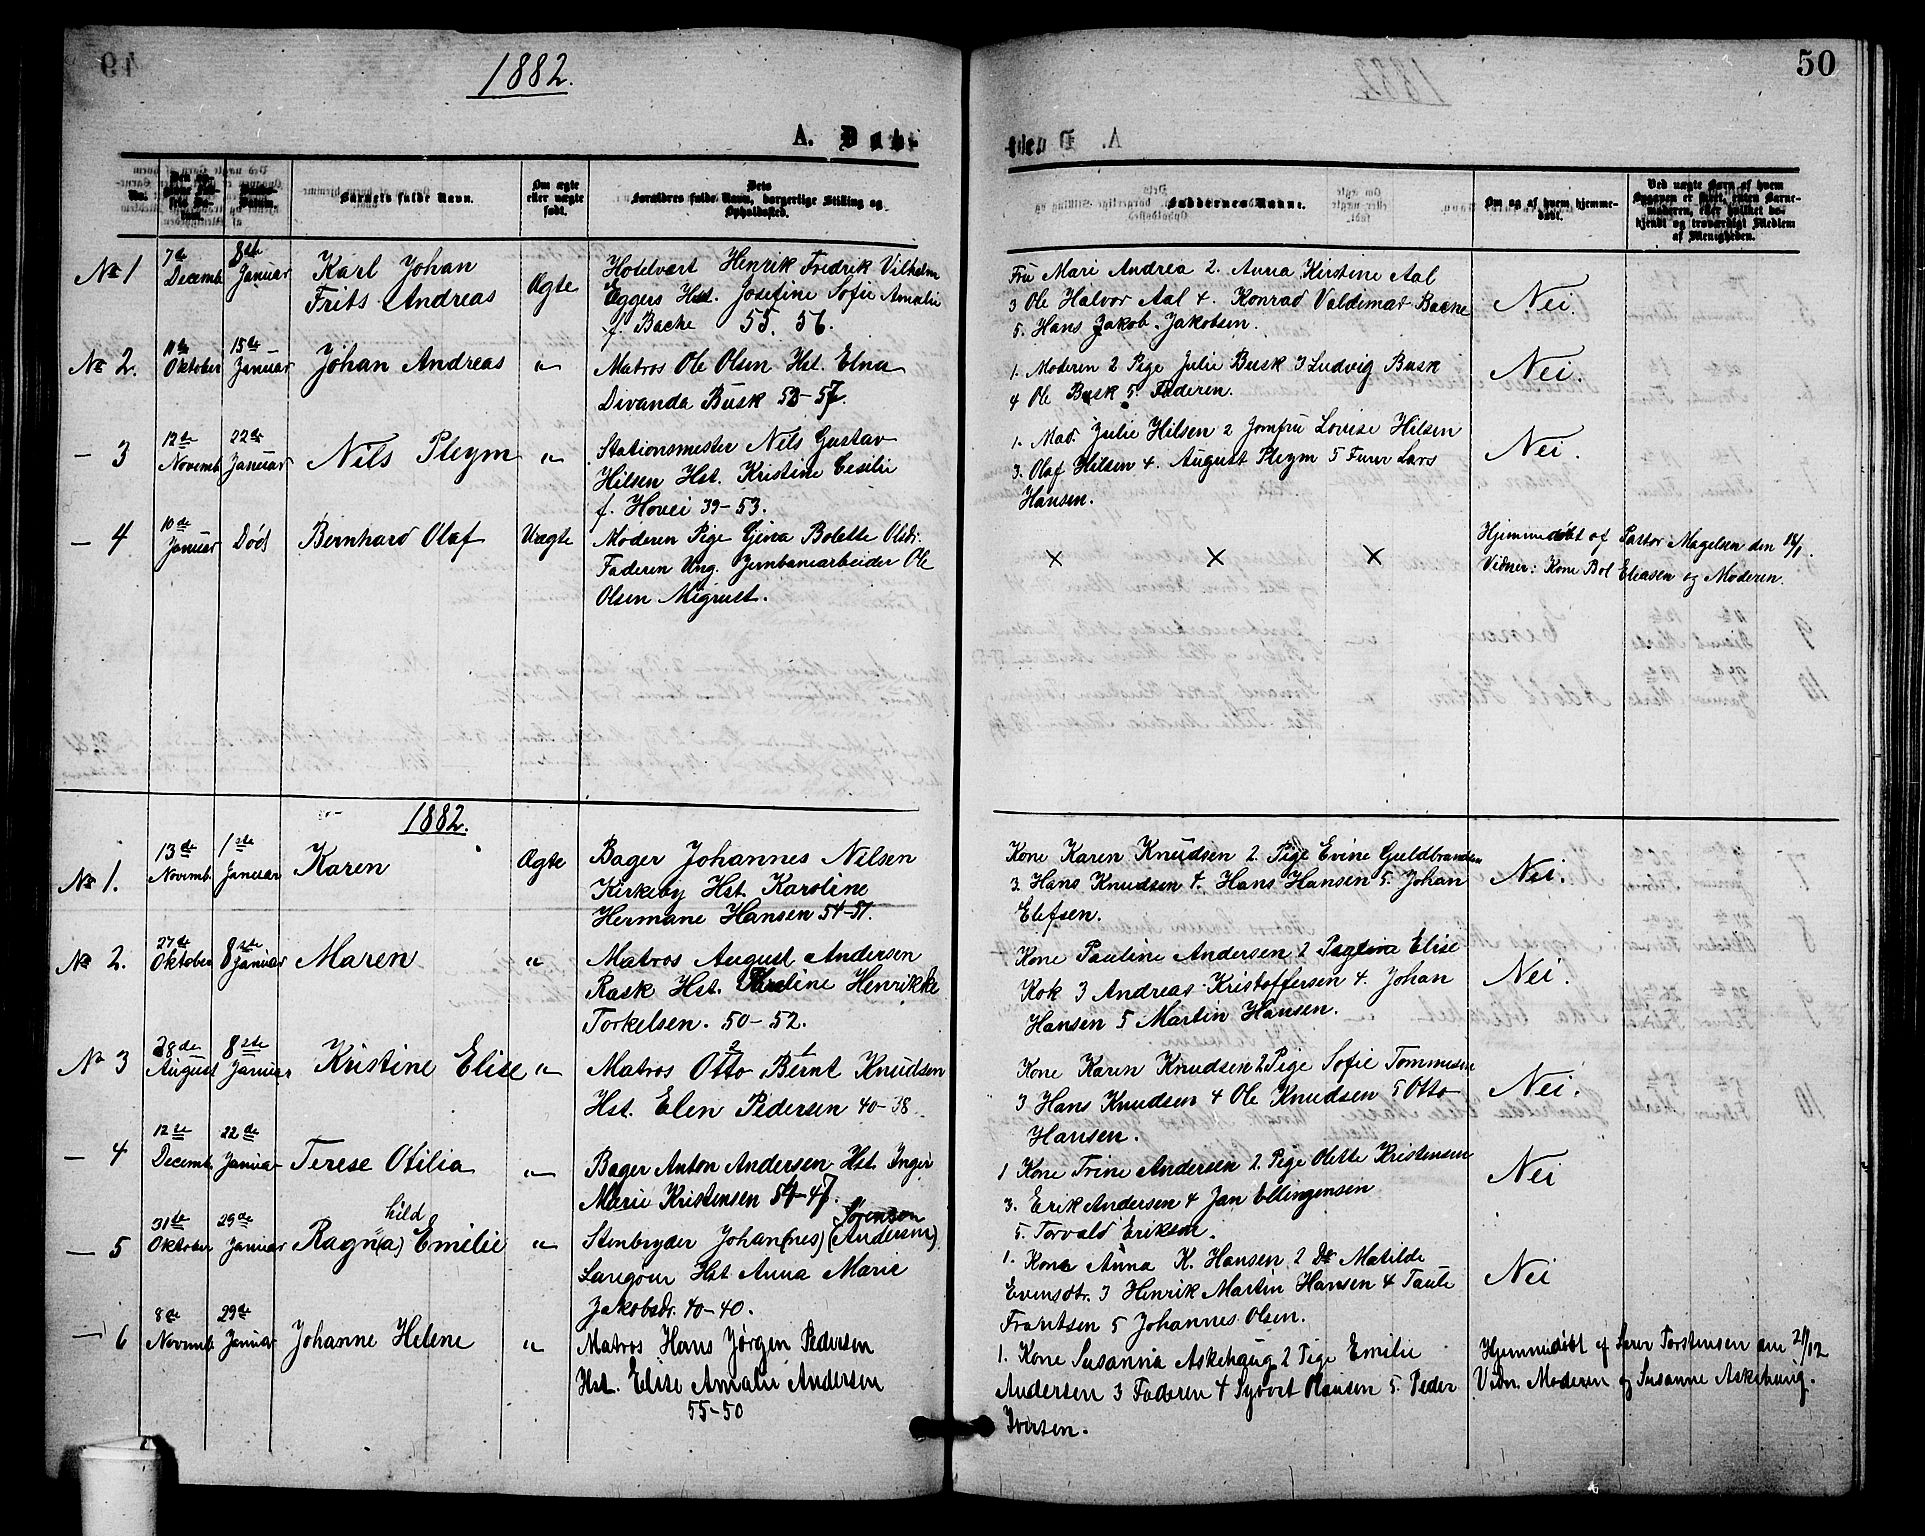 1882.
50
A. Døbte
No.
Barnets fulde Navn.
Om ægte eller uægte født.
Dets Forældres fulde Navn, borgerlige Stilling og Opholdssted.
Faddernes Navne.
Om og af hvem hjemmedøbt.
No 1
7de Decemb
8de Januar
Karl Johan
Frits Andreas
Ægte
Hotelvært Henrik Fredrik Vilhelm
Eggers Hst. Josefine Sofie Amalie
f. Bache 55. 56.
Fru Mari Andrea 2. Anna Kirstine Aal
3 Ole Halvor Aal 4. Konrad Valdemar Bache
5. Hans Jakob Jakobsen.
Nei.
No 2.
Oktober
15de Januar
Johan Andreas
"
Matros Ole Olsen Hst. Elna
Divanda Busk 53-57.
1. Moderen 2 Pige Julie Busk 3 Ludvig Busk
4 Ole Busk 5. Faderen.
Nei.
- 3
12de Novemb
22de Januar
Nils Pleym
"
Stationsmester Nils Gustav
Hilsen Hst. Kristine Cesilie
f. Hovei 39-53.
1. Mad. Julie Hilsen 2 Jomfru Lovise Hilsen
3. Olaf Hilsen 4. August Pleym 5 Furer Lars
Hansen.
Nei.
- 4
10de Januar
Død
Bernhard Olaf
Uægte
Moderen Pige Gina Bolette Olsdr.
Faderen Ung. Jernbanearbeider Ole
Olsen Migrust.
× × ×
Hjemmedøbt af Pastor Magelsen den
Vidner: Kone Bol Eliasen og Moderen.
1882.
No 1.
13de Novemb.
1ste Januar
Karen
Ægte
Bager Johannes Nilsen
Kirkeby Hst. Karoline
Hermane Hansen 54-51.
Kone Karen Knudsen 2. Pige Evine Guldbrandsen
3. Hans Knudsen 4. Hans Hansen 5. Johan
Elefsen.
Nei.
No 2.
27de Oktober
8de Januar
Maren
"
Matros August Andersen
Rask Hst. Karoline Henrikke
Torkelsen. 50-52.
Kone Pauline Andersen 2 Elise
Kok 3 Andreas Kristoffersen 4. Johan
Hansen 5 Martin Hansen.
Nei.
No 3
28de August
8ste Januar
Kristine Elise
"
2 1
Matros Otto Bernt Knudsen
Hst. Elen Pedersen 40-38.
Kone Karen Knudsen 2 Pige Sofie Tommesen
3 Hans Knudsen 4 Ole Knudsen 5 Otto
Hansen.
Nei.
- 4
12te Decemb
22de Januar
Terese Otilia
"
Bager Anton Andersen Hst. Inger
Marie Kristensen 54-47.
1 Kone Trine Andersen 2. Pige Olette Kristensen
3. Erik Andersen 4 Jan Ellingensen
5. Torvald Eriksen.
Nei
- 5
31te Oktober
29de Januar
hild
Ragn(a) Emilie
"
Sørensen
Stenbryder Johan(nes) (Andersen)
Langour Hst. Anna Marie
Jakobsdr. 40-40.
1. Kone Anna K. Hansen 2 Do Matilde
Evensdtr. 3 Henrik Martin Hansen 4 Taule
Frantsen 5 Johannes Olsen.
Nei
- 6
8de Novemb
29de Januar
Johanne Helene
"
Matros Hans Jørgen Pedersen
Hst. Elise Amalie Andersen
55-50
1. Kone Susanna Askehaug 2 Pige Emilie
Andersen 3 Faderen 4 Syvert Hansen 5. Peder
Iversen.
Hjemmedøbt af Lærer Torstensen den 2/12
Vidn. Moderen og Susanne Askehaug.